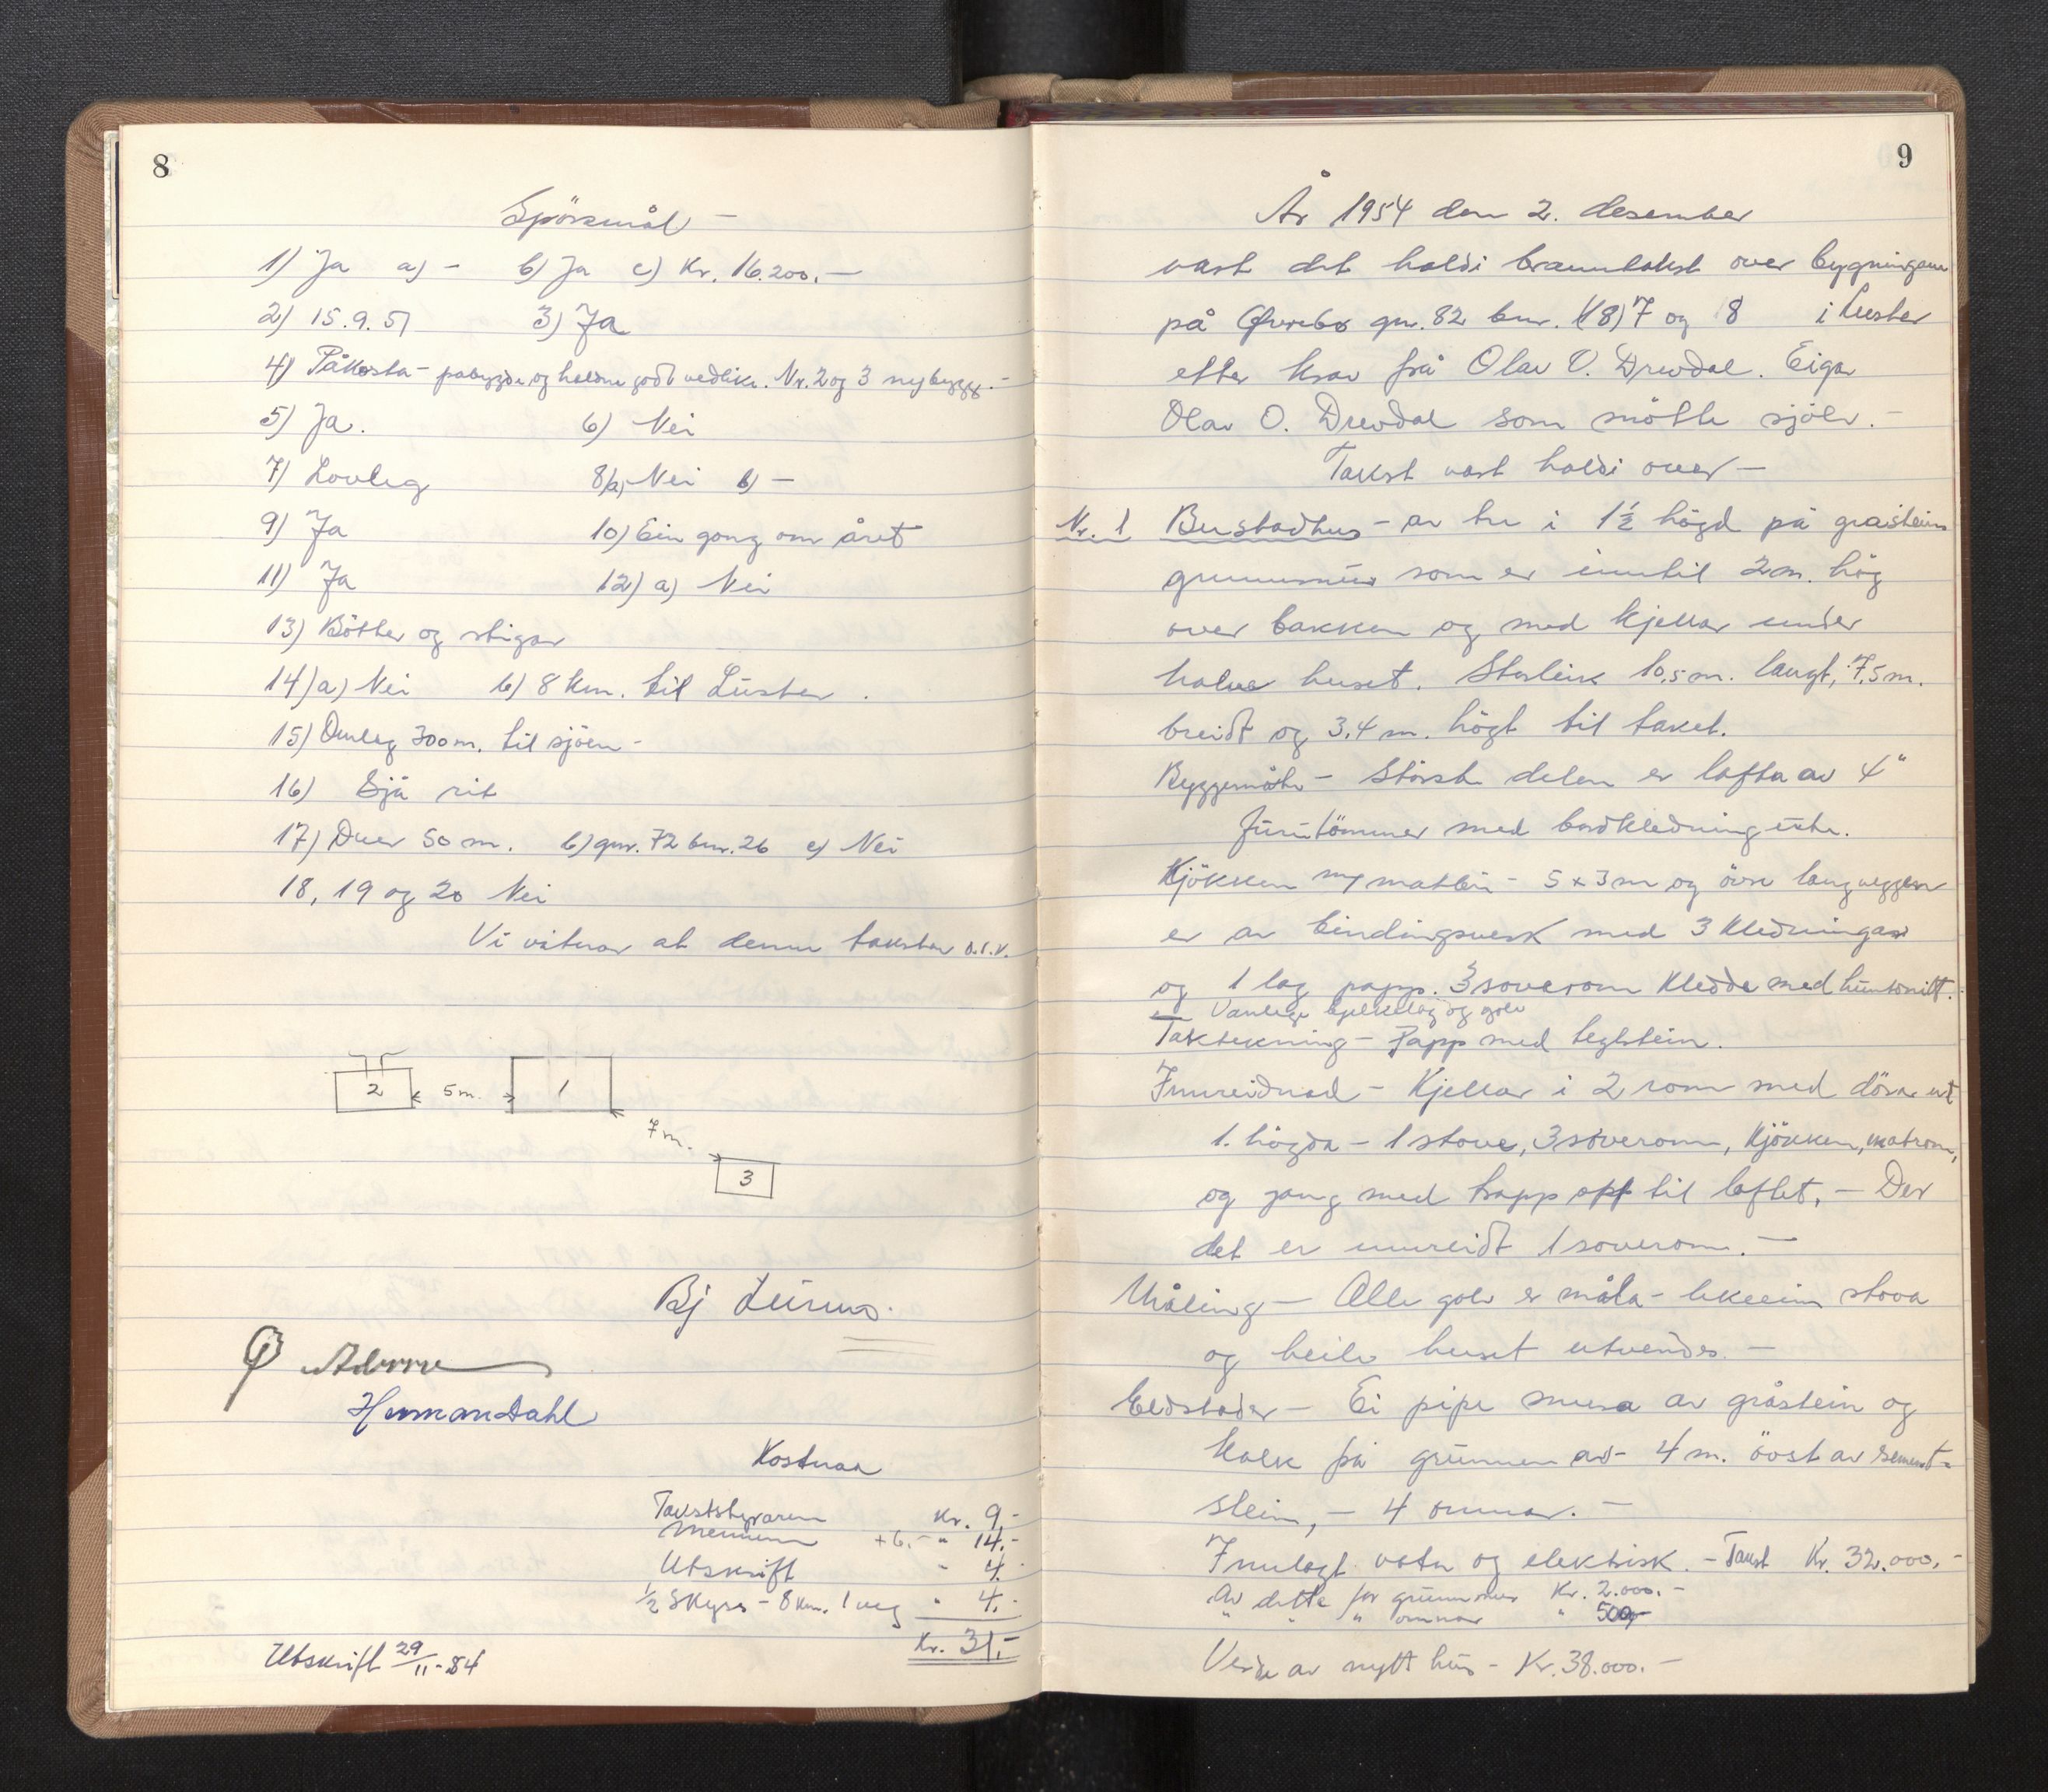 8
Spörsmål –
1) Ja a) – b) Ja c) Kr. 16.200.–
2) 15.9.51 3) Ja
4) Påkosta – påbygde og haldne godt vedlike. Nr. 2 og 3 nybygg. –
5) Ja. 6) Nei
7) Lovleg 8) a) Nei b) –
9) Ja 10) Ein gong om året
11) Ja 12) a) Nei
13) Bötter og stigar
14) a) Nei b) 8 km. til Luster.
15) Omleg 300 m. til sjöen –
16) Sjå rit
17) Over 50 m. b) gnr. 72 bnr. 26 c) Nei
18, 19 og 20 Nei
Vi vitnar at denne taksten o.s.v.
2 5 m. 1
7 m.
3
Bj
Herman Dahl
Kostnar
Takststyraren Kr. 9.–
Mennene +6.– " 14.–
Utskrift – 4.
1/2 Skyss – 8 km. 1 veg " 4.–
Kr. 31.–
Utskrift 29/11-54
9
År 1954 den 2. desember
vart det haldi branntakst over bygningane
på Øvrebø gnr. 82 bnr. (8) 7 og 8 i Luster
etter krav frå Olav O. Drevdal. Eigar
Olav O. Drevdal som mötte sjölv. –
Takst vart haldi over –
Nr. 1 Bustadhus – av tre i 1 1/2 högd på gråsteins
grunnmur som er inntil 2 m. hög
over bakken og med kjellar under
halve huset. Storleik 10,5 m. langt, 7,5 m.
breidt og 3,4 m. högt til taket.
Byggemåte – Störste delen er lafta av 4"
furutömmer med bordkledning ute.
Kjökken m/ matbu – 5 x 3 m og övre langveggen
er av bindingsverk med 3 kledningar
og 1 lag papp. 3 soverom kledde med huntonitt.
Vanlege bjelkelag og golv
Taktekning – Papp med teglstein.
Innreidnad – Kjellar i 2 rom med dörar ut
1. högda – 1 stove, 3 soverom, kjökken, matrom,
og gang med trapp opp til loftet. – Der
det er innreidt 1 soverom. –
Måling – Alle golv er måla – likeeins stova
og heile huset utvendes. –
Eldstader – Ei pipe mura av gråstein og
kalk på grunnen av 4 m. övst av sement-
stein, – 4 omnar. –
Innlagt vatn og elektrisk. – Takst Kr. 32.000.–
Av dette for grunnmur Kr. 2.000.–
" " " omnar " 500,–
Verde av nytt hus – Kr. 38.000.–